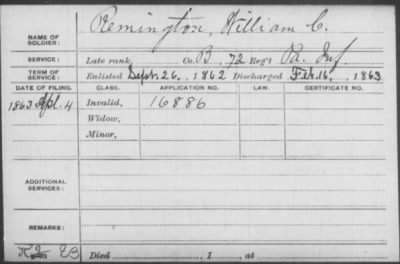 NAME OF SOLDIER: Remington, William C.
SERVICE: Late rank, Co. B, 72 Reg't Pa. Inf.
TERM OF SERVICE: Enlisted Sept. 26, 1862 Discharged Feb. 16, 1863
DATE OF FILING. CLASS. APPLICATION NO. LAW. CERTIFICATE NO.
1863 Apl. 4 Invalid, 16886
Widow,
Minor,
ADDITIONAL SERVICES:
REMARKS:
Died , 1 , at